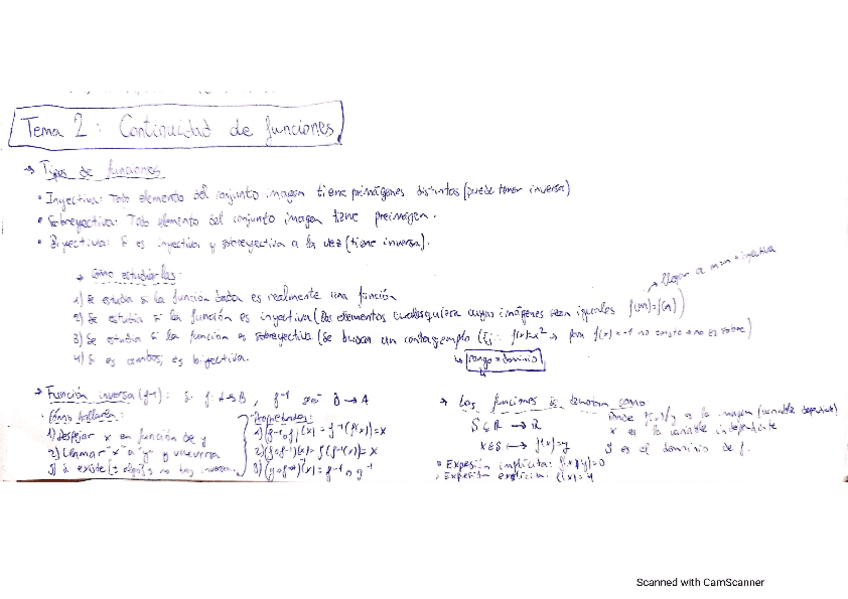 Tema 2: Continuidad de funciones
→ Tipos de funciones
• Inyectiva: Todo elemento del conjunto imagen tiene preimágenes distintas (puede tener inversa)
• Sobreyectiva: Todo elemento del conjunto imagen tiene preimagen.
• Biyectiva: Si es inyectiva y sobreyectiva a la vez (tiene inversa).
→ Cómo estudiarlas:
1) Se estudia si la función dada es realmente una función
2) Se estudia si la función es inyectiva (Dos elementos cualesquiera cuyas imágenes sean iguales f(m)=f(n))
→ llegar a m=n → inyectiva
3) Se estudia si la función es sobreyectiva (Se busca un contraejemplo (Ej: f(x)=x² → para f(x)=-1 no existe → no es sobre)
↳ rango = dominio
4) Si es ambos, es biyectiva.
→ Función inversa (f⁻¹): Si f: A→B, f⁻¹ B → A
• Cómo hallarla:
1) Despejar x en función de y
2) Llamar "x" a "y" y viceversa
3) Si existe
Propiedades:
1) (f⁻¹ o f)(x) = f⁻¹(f(x)) = x
2) (f o f⁻¹)(x) = f(f⁻¹(x)) = x
→ Las funciones se denotan como:
S⊆ℝ → ℝ
x∈S ⟼ f(x)=y
Donde f(x)/y es la imagen (variable dependiente)
x es la variable independiente
S es el dominio de f.
• Expresión implícita: f(x,y)=0
• Expresión explícita: f(x)=y
Scanned with CamScanner